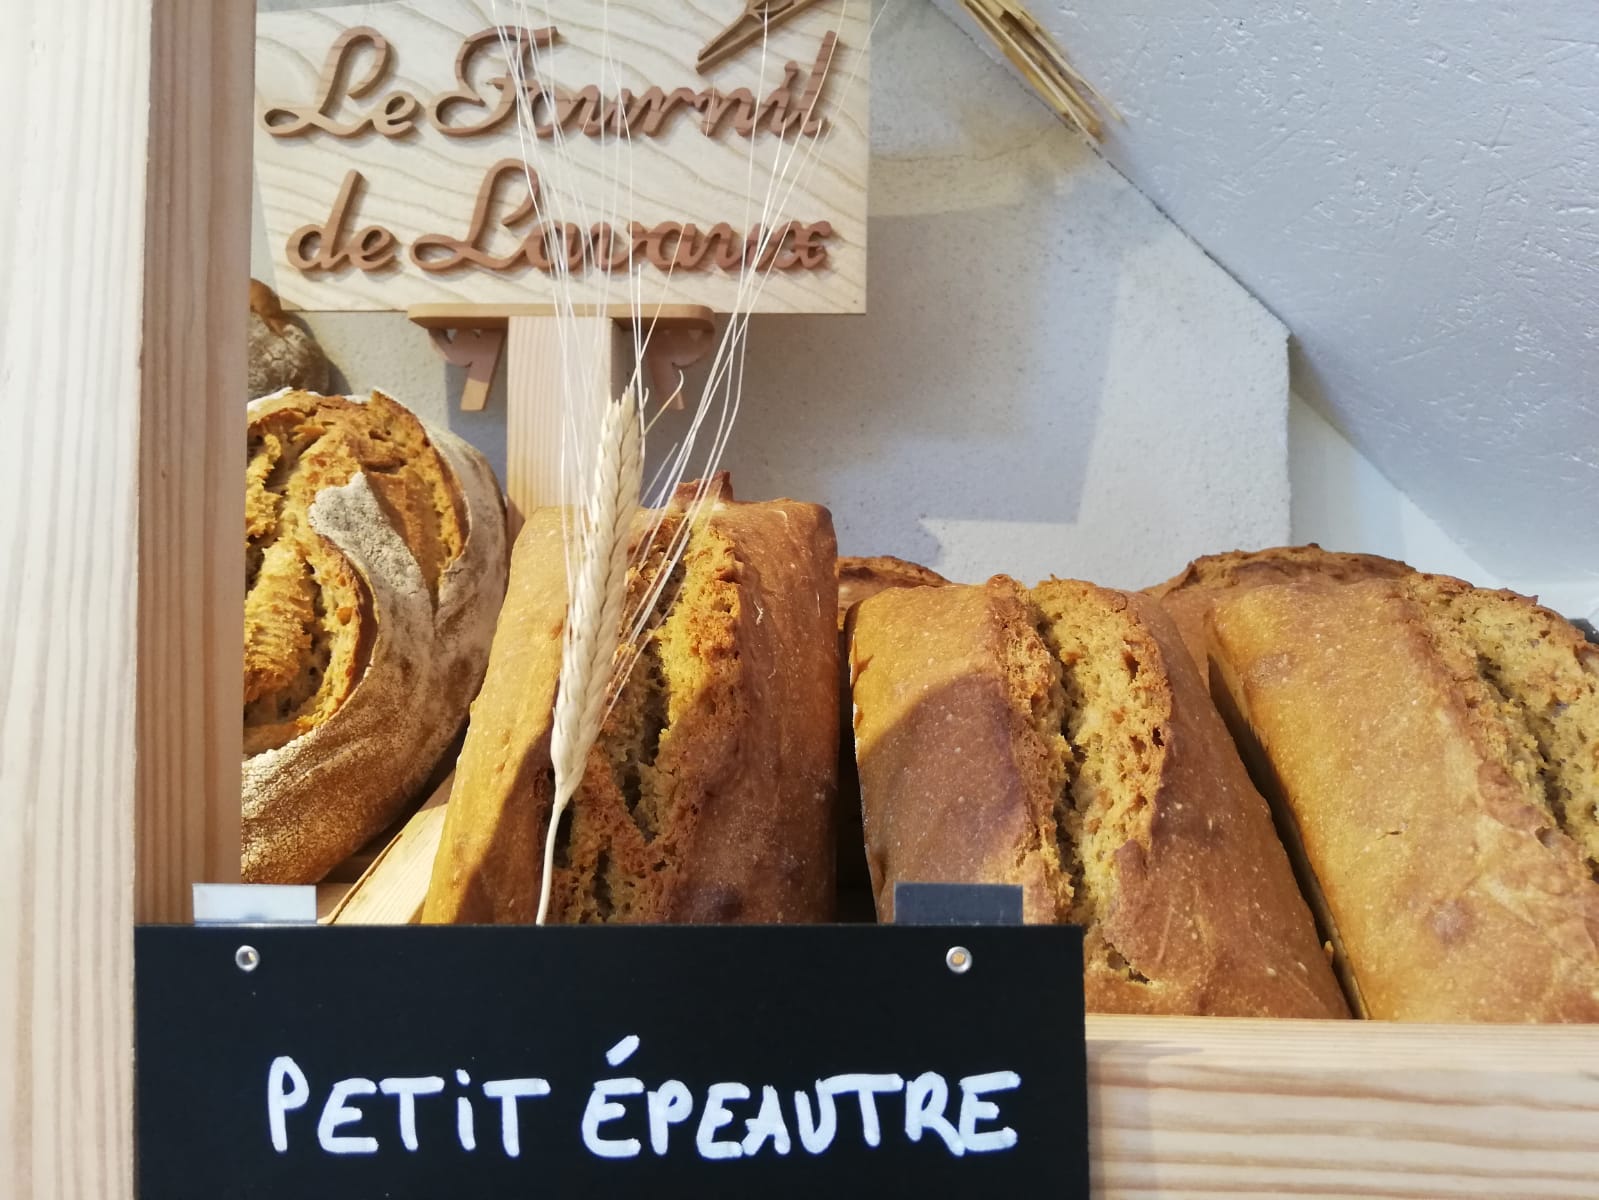 Le Fournil
de Lavaux
PETiT ÉPEAUTRE